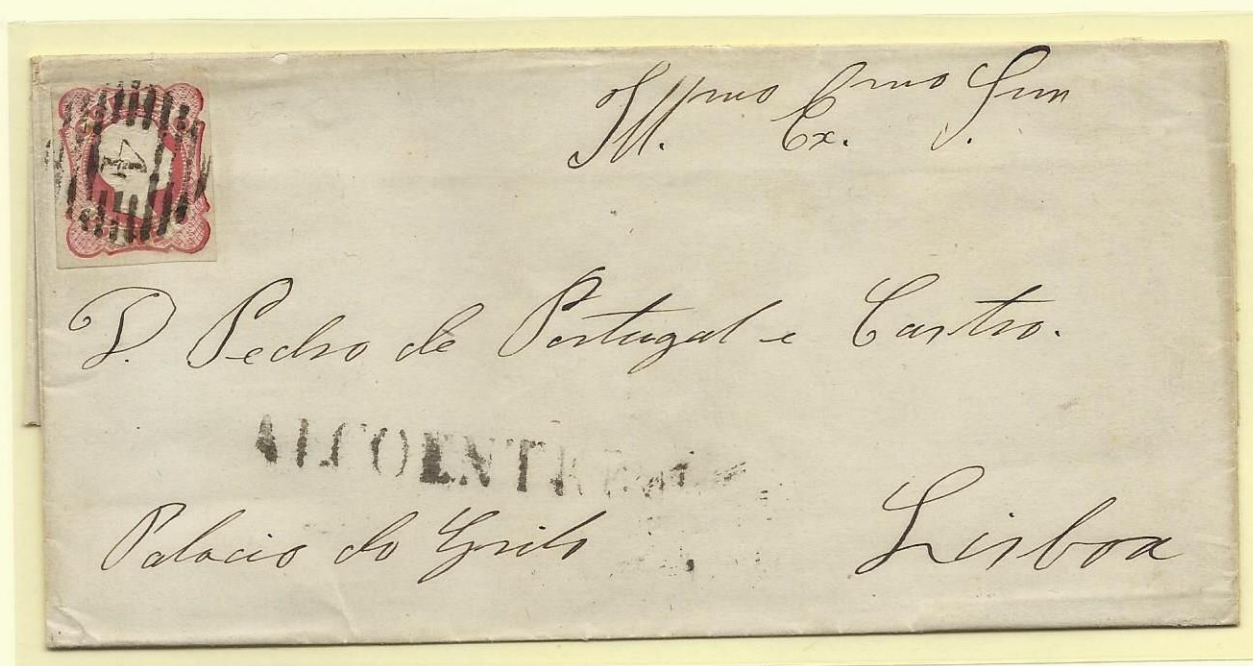 Ill.mo Ex.mo Snr.
D. Pedro de Portugal e Castro.
ALCOENTRE
Palacio do Grilo
Lisboa